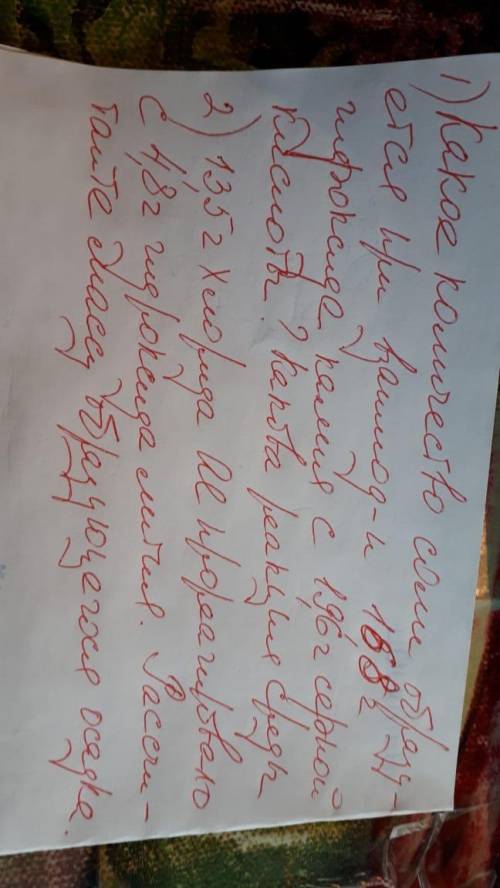 1) Какое количество соли образу-
ется при взаимод-и 168г
гидроксида калия с 196г серной
кислоты? Какова реакция среды
2) 135г хлорида Al прореагировало
с 4,8г гидроксида лития. Рассчи-
тайте массу образующегося осадка.